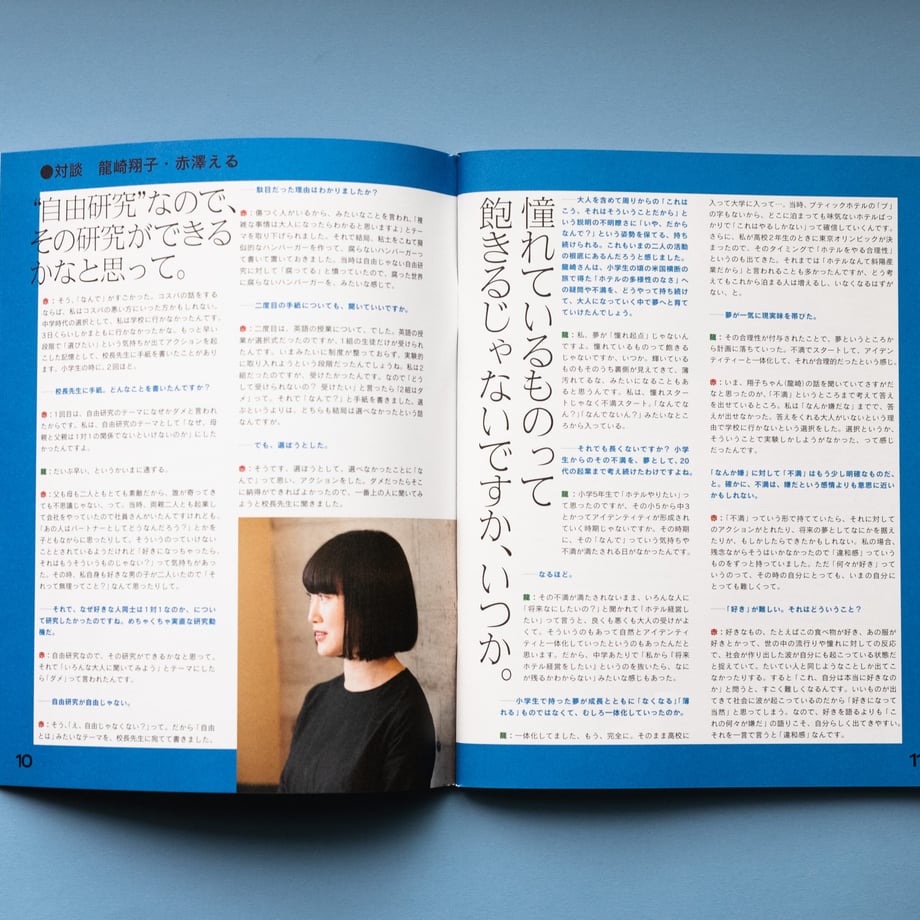 ●対談　龍崎翔子・赤澤える
“自由研究”なので、
その研究ができる
かなと思って。
赤：そう、「なんで」がすごかった。コスパの話をする
ならば、私はコスパの悪い方にいった方かもしれない。
中学時代の選択として、私は学校に行かなかったんです。
3日くらいしかまともに行かなかったかな。もっと早い
段階で「選びたい」という気持ちが出てアクションを起
こした記憶として、校長先生に手紙を書いたことがあり
ます。小学生の時に、2回ほど。
──校長先生に手紙。どんなことを書いたんですか？
赤：1回目は、自由研究のテーマになぜかダメと言われ
たからです。私は、自由研究のテーマとして「なぜ、母
親と父親は1対1の関係でないといけないのか」にした
かったんですよ。
龍：だいぶ早い、というかいまに通ずる。
赤：父も母も二人ともとても素敵だから、誰が寄ってき
ても不思議じゃない、って。当時、両親二人とも起業し
て会社をやっていたので社員さんがいたんですけれども。
「あの人はパートナーとしてどうなんだろう？」とかを
子どもながらに思ったりして。そういうのっていけない
こととされているようだけれど「好きになっちゃったら、
それはもうそういうものじゃない？」って気持ちがあっ
た。その時、私自身も好きな男の子が二人いたので「そ
れって無理ってこと？」なんて思ったりして。
──それで、なぜ好きな人同士は1対1なのか、につい
て研究したかったのですね。めちゃくちゃ実直な研究動
機だ。
赤：自由研究なので、その研究ができるかなと思って。
それで「いろんな大人に聞いてみよう」とテーマにした
ら「ダメ」って言われたんです。
──自由研究が自由じゃない。
赤：そう、「え、自由じゃなくない？」って、だから「自由
とは」みたいなテーマを、校長先生に宛てて書きました。
──駄目だった理由はわかりましたか？
赤：傷つく人がいるから、みたいなことを言われ、「複
雑な事情は大人になったらわかると思いますよ」とテー
マを取り下げられました。それで結局、粘土をこねて疑
似的なハンバーガーを作って、腐らないハンバーガーっ
て書いて置いておきました。当時は自由じゃない自由研
究に対して「腐ってる」と憤っていたので、腐った世界
に腐らないハンバーガーを、みたいな感じで。
──二度目の手紙についても、聞いていいですか。
赤：二度目は、英語の授業について、でした。英語の授
業が選択式だったのですが、1組の生徒だけが受けられ
たんです。いまみたいに制度が整っておらず、実験的
に取り入れようという段階だったんでしょうね。私は2
組だったのですが、受けたかったんです。なので「どう
して受けられないの？ 受けたい」と言ったら「2組はダ
メ」って。それで「なんで？」と手紙を書きました。選
ぶというよりは、どちらも結局は選べなかったという話
なんですが。
──でも、選ぼうとした。
赤：そうです、選ぼうとして、選べなかったことに「な
んで」って思い、アクションをした。ダメだったらそこ
に納得ができればよかったので、一番上の人に聞いてみ
ようと校長先生に聞きました。
10
憧れているものって
飽きるじゃないですか、いつか。
──大人を含めて周りからの「これは
こう、それはそういうことだから」と
いう説明の不明瞭さに「いや、だから
なんで？」という姿勢を保てる、持ち
続けられる。これもいまの二人の活動
の根底にあるんだろうと感じました。
龍崎さんは、小学生の頃の米国横断の
旅で得た「ホテルの多様性のなさ」へ
の疑問や不満を、どうやって持ち続け
て、大人になっていく中で夢へと育て
ていけたんでしょう。
龍：私、夢が「憧れ起点」じゃないん
ですよ。憧れているものって飽きる
じゃないですか、いつか。輝いている
ものもそのうち裏側が見えてきて、薄
汚れてるな、みたいになることもあ
ると思うんです。私は、憧れスター
トじゃなく不満スタート。「なんでな
ん？」「なんでないん？」みたいなとこ
ろから入っている。
──それでも長くないですか？ 小学
生からのその不満を、夢として、20
代の起業まで考え続けたわけですよね。
龍：小学5年生で「ホテルやりたい」っ
て思ったのですが、その小5から中3
とかってアイデンティティが形成され
ていく時期じゃないですか。その時期
に、その「なんで」っていう気持ちや
不満が満たされる日がなかったんです。
──なるほど。
龍：その不満が満たされないまま、いろんな人に
「将来なにしたいの？」と聞かれて「ホテル経営し
たい」って言うと、良くも悪くも大人の受けがよ
くて。そういうのもあって自然とアイデンティ
ティと一体化していったというのもあったんだと
思います。だから、中学あたりで「私から『将来
ホテル経営をしたい』というのを抜いたら、なに
が残るかわからない」みたいな感じもあった。
──小学生で持った夢が成長とともに「なくなる」「薄
れる」ものではなくて、むしろ一体化していったのか。
龍：一体化してました、もう、完全に。そのまま高校に
入って大学に入って…。当時、ブティックホテルの「ブ」
の字もないから、どこに泊まっても味気ないホテルばっ
かりで「これはやるしかない」って確信していくんです。
さらに、私が高校2年生のときに東京オリンピックが決
まったので、そのタイミングで「ホテルをやる合理性」
というのも出てきた。それまでは「ホテルなんて斜陽産
業だから」と言われることも多かったんですが、どう考
えてもこれから泊まる人は増えるし、いなくなるはずが
ない、と。
──夢が一気に現実味を帯びた。
龍：その合理性が付与されたことで、夢というところか
ら計画に落ちていった。不満でスタートして、アイデン
ティティーと一体化して、それが合理的だったという感じ。
赤：いま、翔子ちゃん（龍崎）の話を聞いていてさすがだ
なと思ったのが、「不満」というところまで考えて答え
を出せているところ。私は「なんか嫌だな」までで、答
えが出せなかった。答えをくれる大人がいないという理
由で学校に行かないという選択をした。選択というか、
そういうことで実験しかしようがなかった、って感じ
だったんです。
「なんか嫌」に対して「不満」はもう少し明確なものだ、
と。確かに、不満は、嫌だという感情よりも意思に近い
かもしれない。
赤：「不満」っていう形で持てていたら、それに対して
のアクションがとれたり、将来の夢としてなにかを据え
たりが、もしかしたらできたかもしれない。私の場合、
残念ながらそうはいかなかったので「違和感」っていう
ものをずっと持っていました。ただ「何々が好き」ってい
うのって、その時の自分にとっても、いまの自分に
とっても難しくって。
──「好き」が難しい。それはどういうこと？
赤：好きなもの、たとえばこの食べ物が好き、あの服が
好きとかって、世の中の流行りや憧れに対しての反応
で、社会が作り出した波が自分にも起こっている状態だ
と捉えていて。たいてい人と同じようなことしか出てこ
なかったりする。すると「これ、自分は本当に好きなの
か」と問うと、すごく難しくなるんです。いいものが出
てきて社会に波が起こっているのだから「好きになって
当然」と思ってしまう。なので、好きを語るよりも「こ
れの何々が嫌だ」の語りこそ、自分らしく出てきやすい。
それを一言で言うと「違和感」なんです。
11